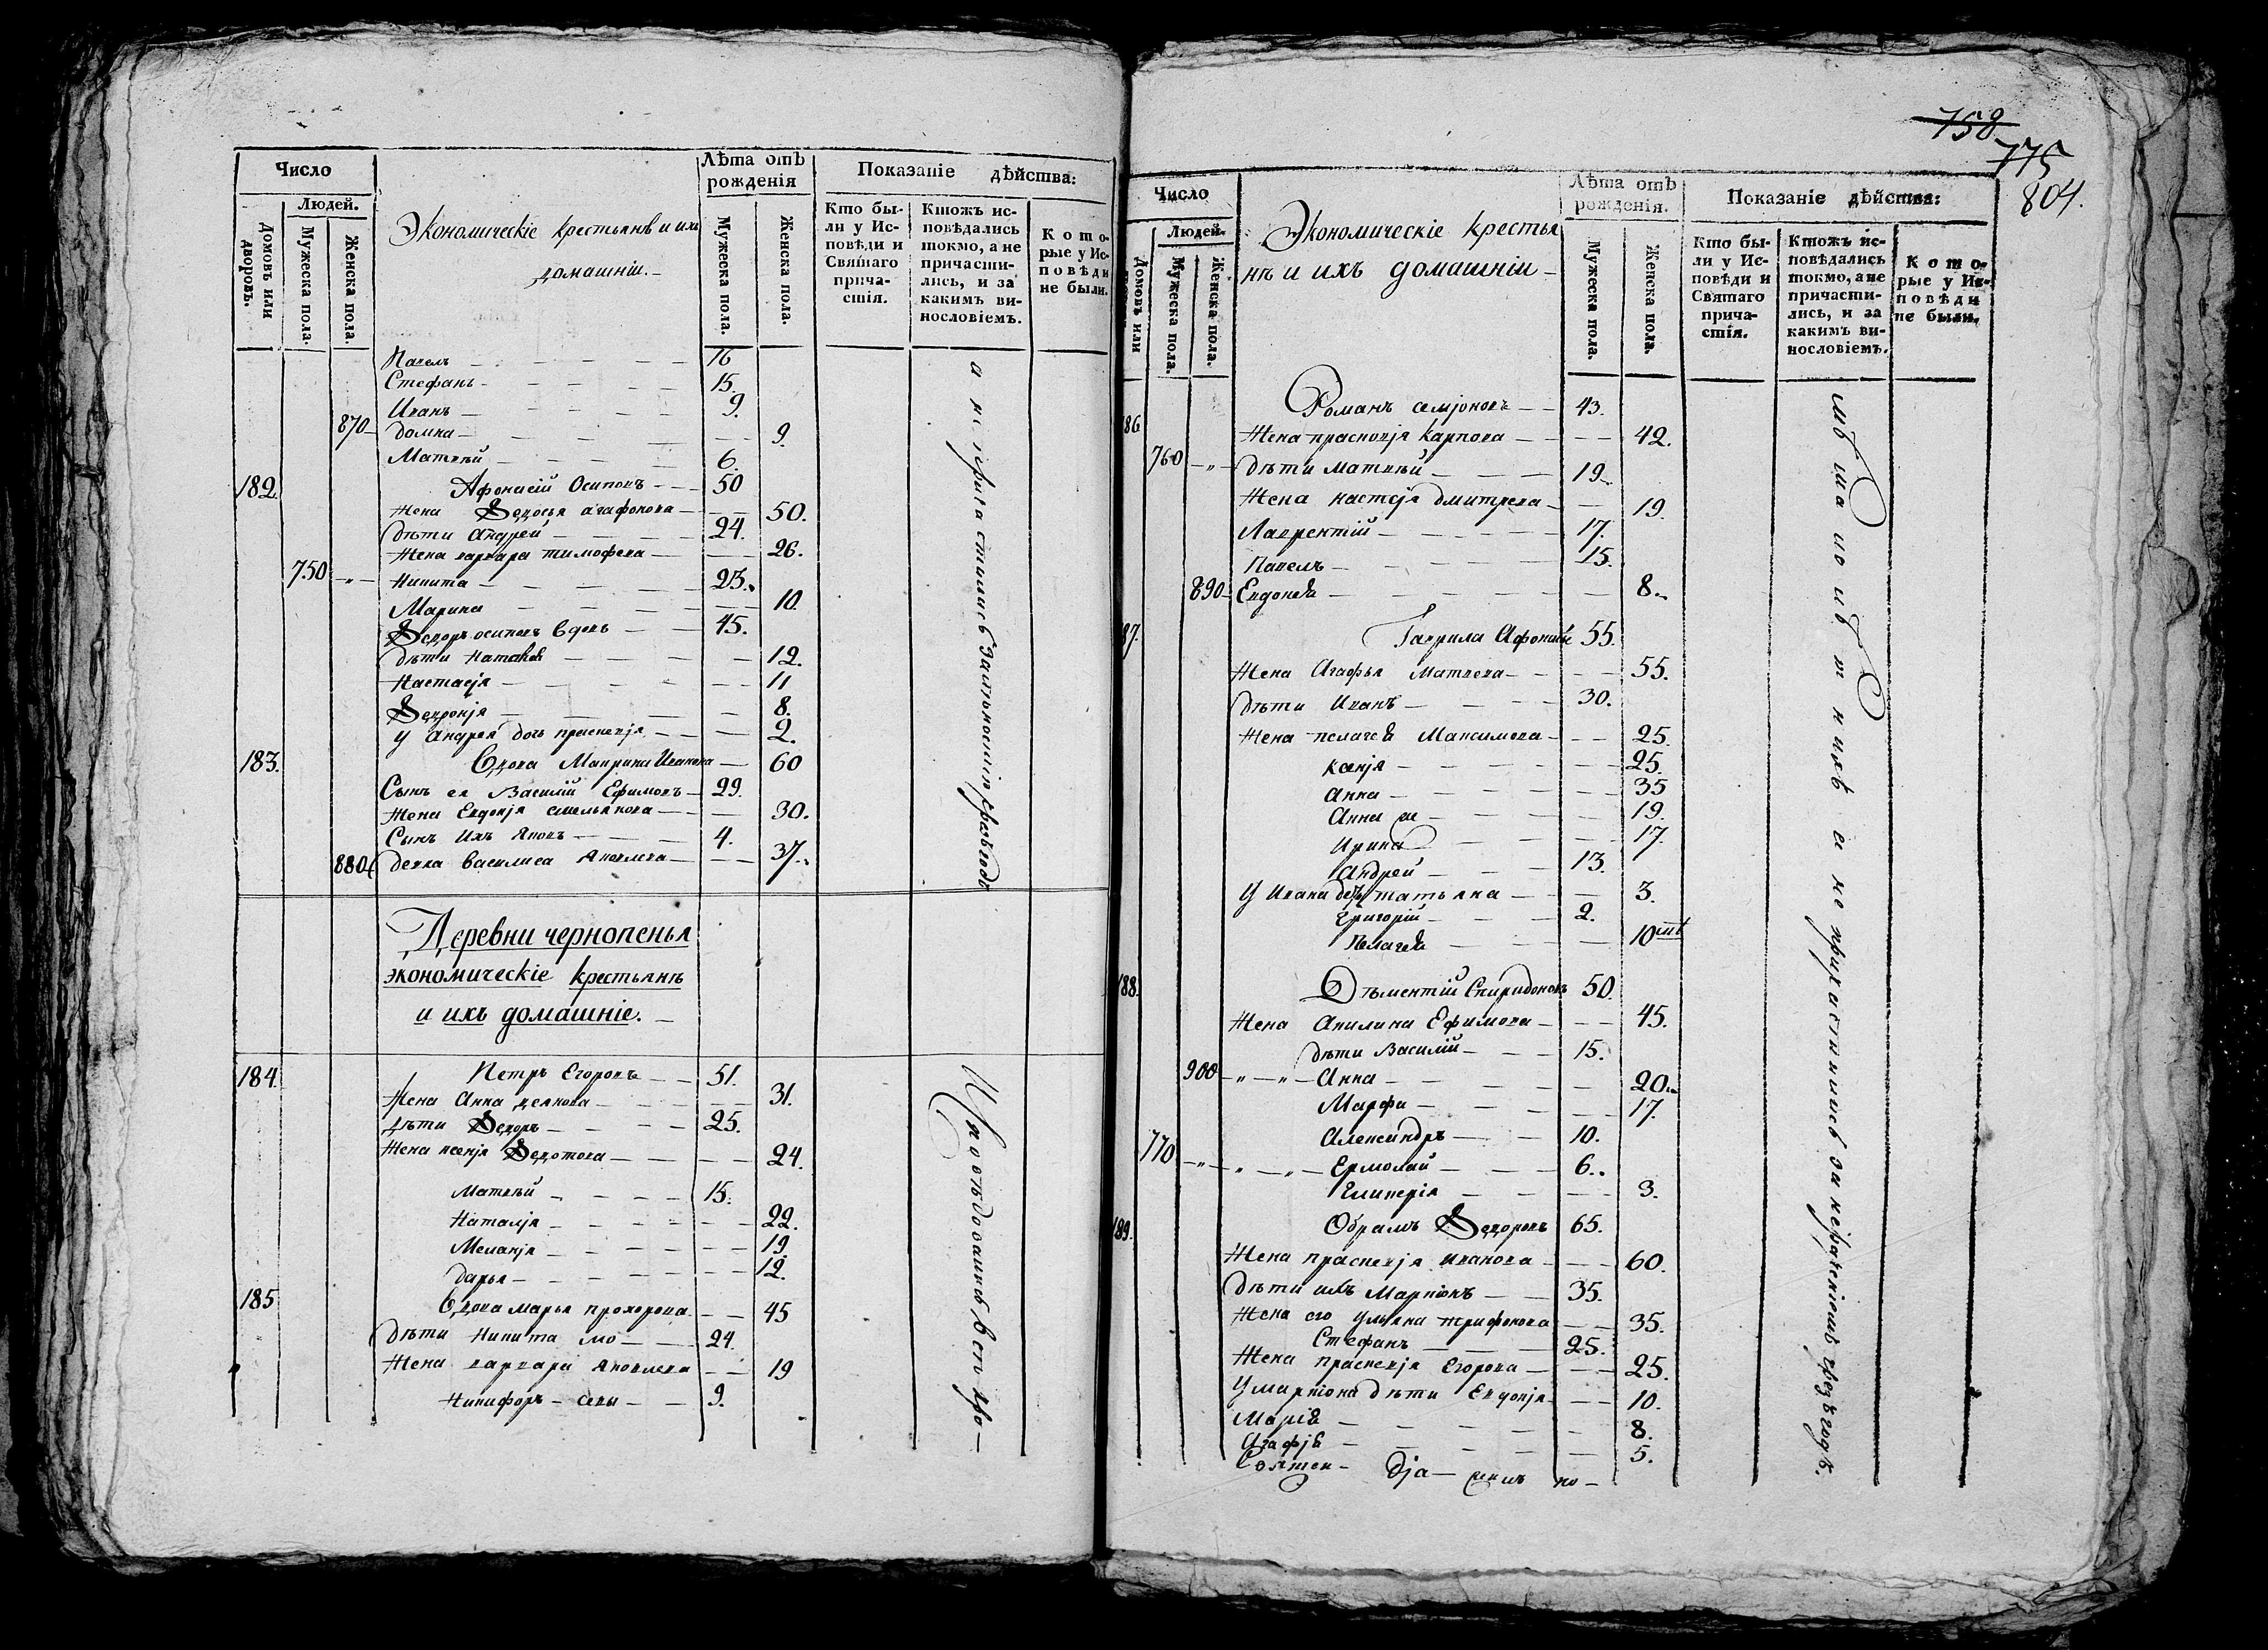 Число
Людей.
Домовъ или дворовъ.
Мужеска пола.
Женска пола.
Экономическіе крестьянѣ и ихъ
домашніи.
Лѣта отъ рожденія
Мужеска пола.
Женска пола.
Показаніе дѣйства:
Кто бы-
ли у Ис-
повѣди и
Святаго
прича-
стія.
Ктожъ ис-
повѣдались
токмо, а не
причасти-
лись, и за
какимъ ви-
нословіемъ.
Кото-
рые у Ис-
повѣди
не были.
Павелъ 16
Стефанъ 15.
Иванъ 9.
870 домна 9.
Матвѣй 6.
182. Афонасій Осиповъ 50
жена Ѳедосья агафонова 50.
дѣти Андрей 24.
жена варвара тимофева 26.
750 никита 23.
Марина 10.
Ѳедоръ осиповъ вдовъ 45.
дѣти наталья 12.
Настасія 11
Ѳевронія 8.
у Андрея дочь прасковія 2.
183. Вдова Маврина Иванова 60
Сынъ ея Василій Ефимовъ 29.
жена Евдокія емельянова 30.
Сынъ ихъ Яковъ 4.
880 девка василиса Яковлева 37.
Деревни чернопенья
экономическіе крестьянѣ
и ихъ домашніе.
184. Петръ Егоровъ 51.
жена Анна 31.
дѣти Ѳедоръ 25.
жена ксенія Ѳедотова 24.
Матвѣй 15.
Наталія 22.
Меланія 19.
дарья 12.
185 Вдова марья прохорова 45
дѣти никита 24.
жена варвара Яковлева 19
никифоръ 9.
а не причастились
758
775
804.
Число
Людей.
Домовъ или
Мужеска пола.
Женска пола.
Экономическіе крестья
нѣ и ихъ домашніи
Лѣта отъ рожденія.
Мужеска пола.
Женска пола.
Показаніе дѣйства:
Кто бы-
ли у Ис-
повѣди и
Святаго
прича-
стія.
Ктожъ ис-
повѣдались
токмо, а не
причасти-
лись, и за
какимъ ви-
нословіемъ.
Кото-
рые у Ис-
повѣди
не были.
86. Романъ семіоновъ 43.
жена прасковія карпова 42.
760 дѣти матвѣй 19.
жена настасія дмитрева 19.
Лаврентій 17.
Павелъ 15.
890 Евдокія 8.
87. Гаврила Афонасіевъ 55.
жена Агафья Матвева 55.
дѣти Иванъ 30.
жена пелагея Максимова 25.
ксенія 25.
анна 35
Анна 19.
Ирина 17.
Андрей 13.
у Ивана дети татьяна 3.
григорій 2.
Пелагея 10
188. Дѣментій Спиридоновъ 50.
жена Акилина Ефимова 45.
дѣти Василій 15.
900 Анна 20.
Марфа 17.
Александръ 10.
770 Ермолай 6.
Гликерія 3.
189. Обрамъ Ѳедоровъ 65.
жена прасковія иванова 60.
дѣти ихъ Маркіонъ 35.
жена его ульяна трифонова 35.
Стефанъ 25.
жена прасковія Егорова 25.
у маркіона дѣти Евдокія 10.
Марія 8.
Агафія 5.
а не причастились за нераченіемъ чрезъ годъ.